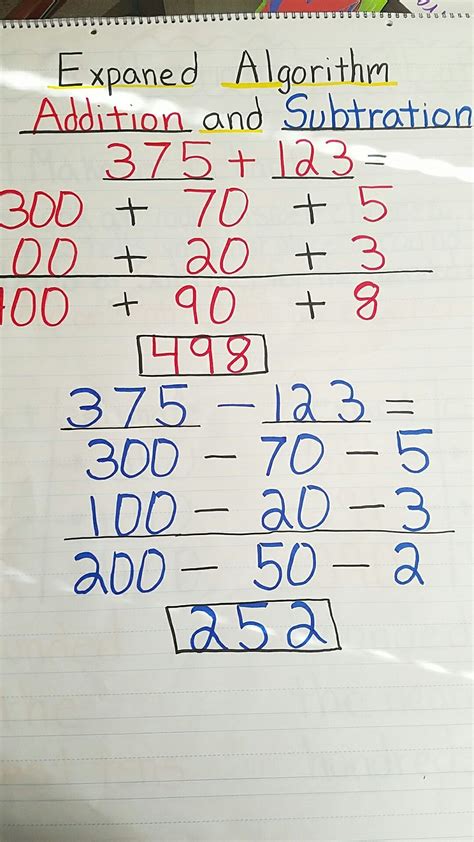 Expaned Algorithm
Addition and Subtration
375 + 123 =
300 + 70 + 5
00 + 20 + 3
100 + 90 + 8
498
375 - 123 =
300 - 70 - 5
100 - 20 - 3
200 - 50 - 2
252